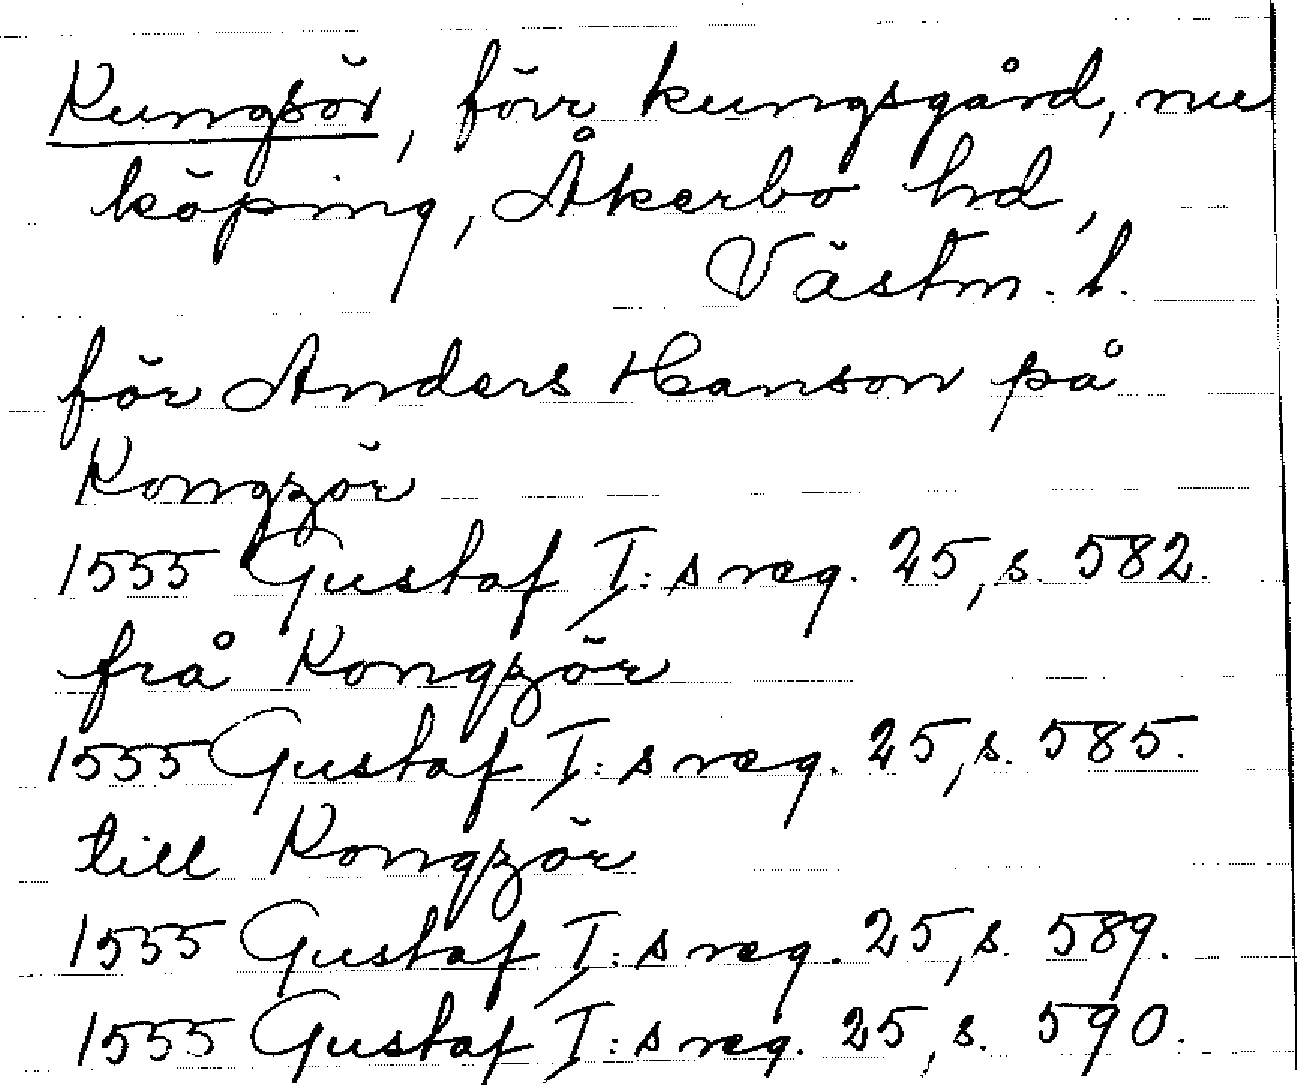 Kungsör, förr kungsgård, nu
köping, Åkerbo hd,
Västm. l.
för Anders Hanson på
Kongzör
1555 Gustaf I:s reg. 25, s. 582.
frå Kongzör
1555 Gustaf I:s reg. 25, s. 585.
till Kongzör
1555 Gustaf I:s reg. 25, s. 589.
1555 Gustaf I:s reg. 25, s. 590.